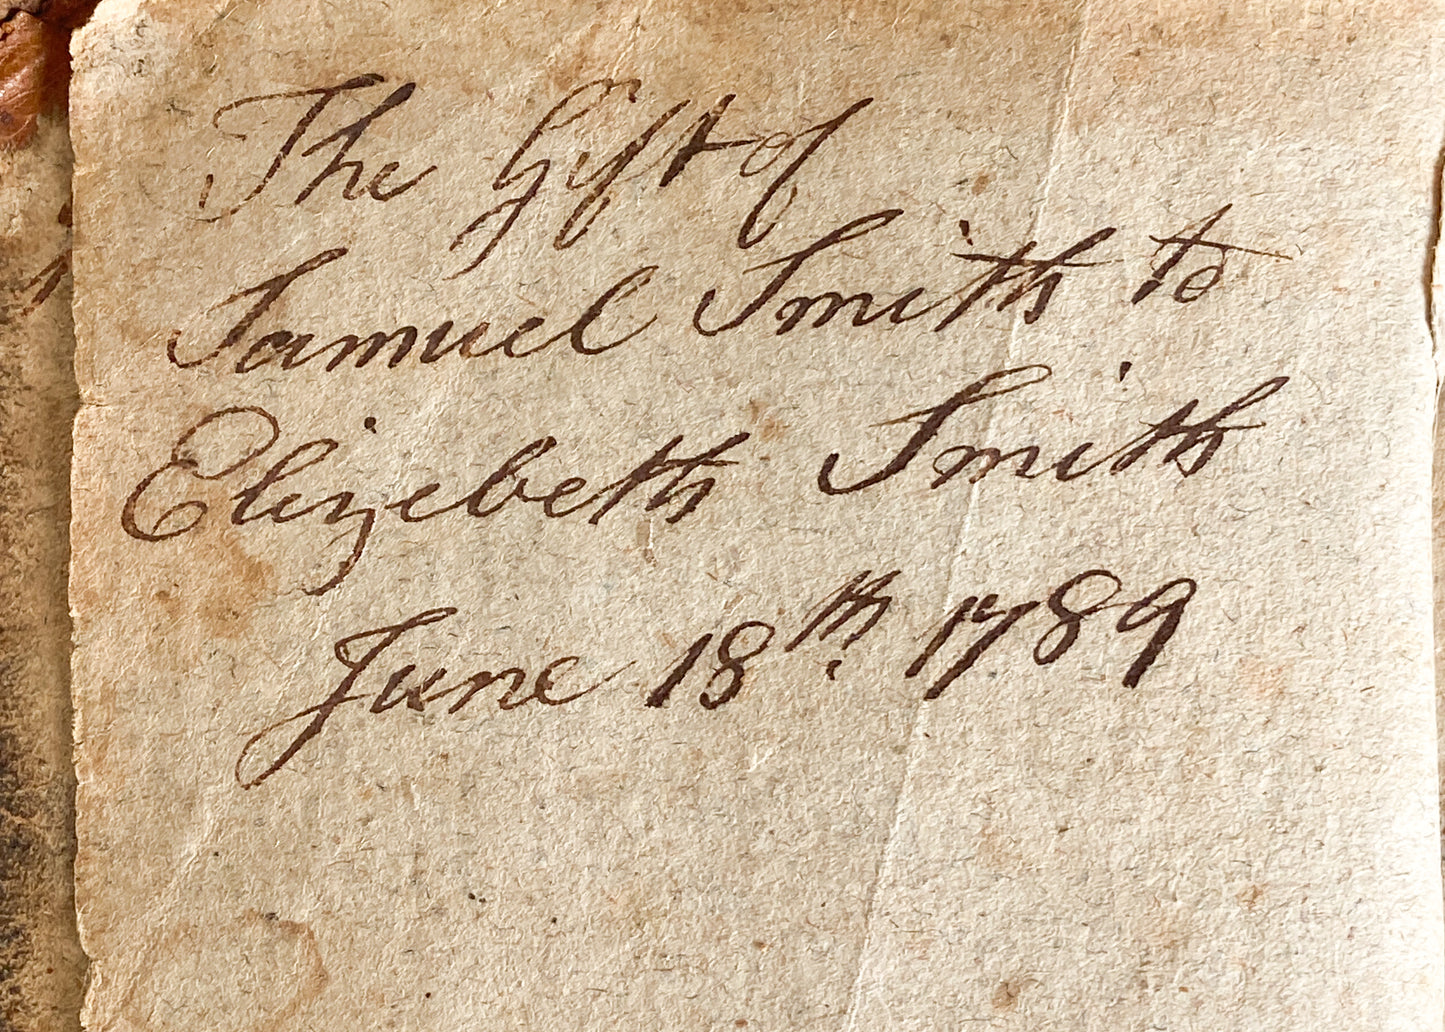 The Gift of
Samuel Smith to
Elizebeth Smith
June 18th 1789